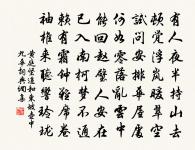 有人夜半持山去
頓覺浮嵐暖翠空
試問安排華屋處
何如零落亂雲中
能回趙璧人安在
已入南柯夢不通
賴有霜鐘難席卷
袖椎來聽響玲瓏
黃庭堅追和東坡壺中
九華詞典網集